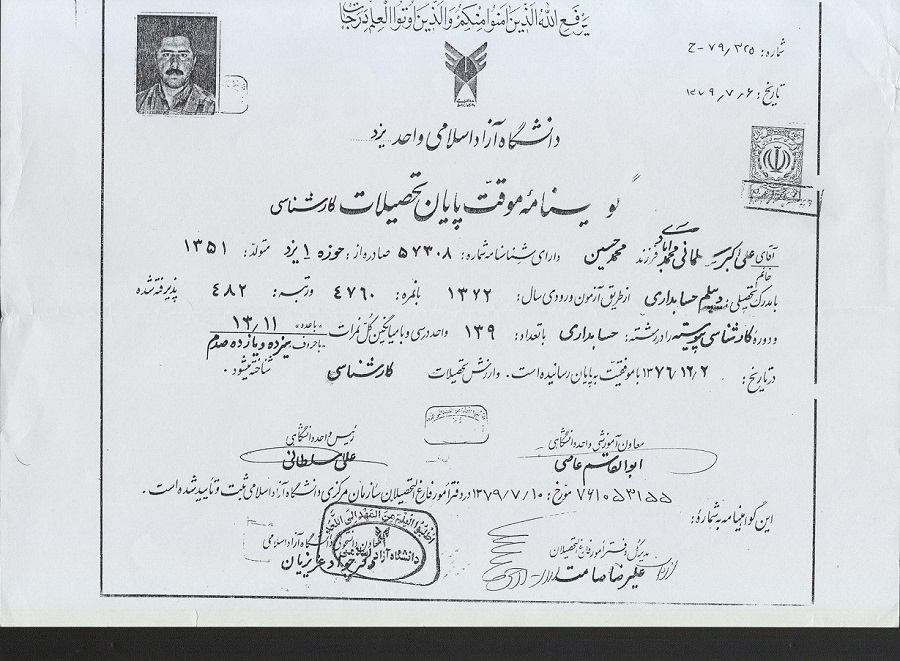 یَرْفَعِ اللهُ الَّذینَ آمَنُوا مِنْکُمْ وَالَّذینَ اُوتُوا الْعِلْمَ دَرَجَاتٍ
شماره: ۷۹٫۳۲۵-ح
تاریخ: ۱۳۷۹٫۷٫۶
دانشگاه آزاد اسلامی واحد یزد
گواهینامه موقت پایان تحصیلات کارشناسی
آقای علی اکبر فرزند محمدحسین دارای شناسنامه شماره: ۵۷۳۰۸ صادره از: حوزه ۱ یزد متولد: ۱۳۵۱
خانم
با مدرک تحصیلی: دیپلم حسابداری از طریق آزمون ورودی سال: ۱۳۷۲ با نمره: ۴۷۶۰ و رتبه: ۴۸۲ پذیرفته شده
و دوره کارشناسی پیوسته را در رشته: حسابداری با تعداد: ۱۳۹ واحد درسی و با میانگین کل نمرات باعدد ۱۳٫۱۱
باحروف سیزده و یازده صدم
در تاریخ: ۱۳۷۶/۱۲/۲ با موفقیت به پایان رسانیده است. و ارزش تحصیلات کارشناسی شناخته میشود.
معاون آموزشی واحد دانشگاهی
ابوالقاسم عاصی
رئیس واحد دانشگاهی
علی سلطانی
این گواهینامه به شماره: ۷۶۱۰۵۳۱۵۵ مورخ: ۱۳۷۹/۷/۱۰ در دفتر امور فارغ التحصیلان سازمان مرکزی دانشگاه آزاد اسلامی ثبت و تایید شده است.
مدیر کل دفتر امور فارغ التحصیلان
علیرضا صامت
دانشگاه آزاد اسلامی
جواد عزیزیان
اطلبوا العلم من المهد الی اللحد
دانشگاه آزاد اسلامی